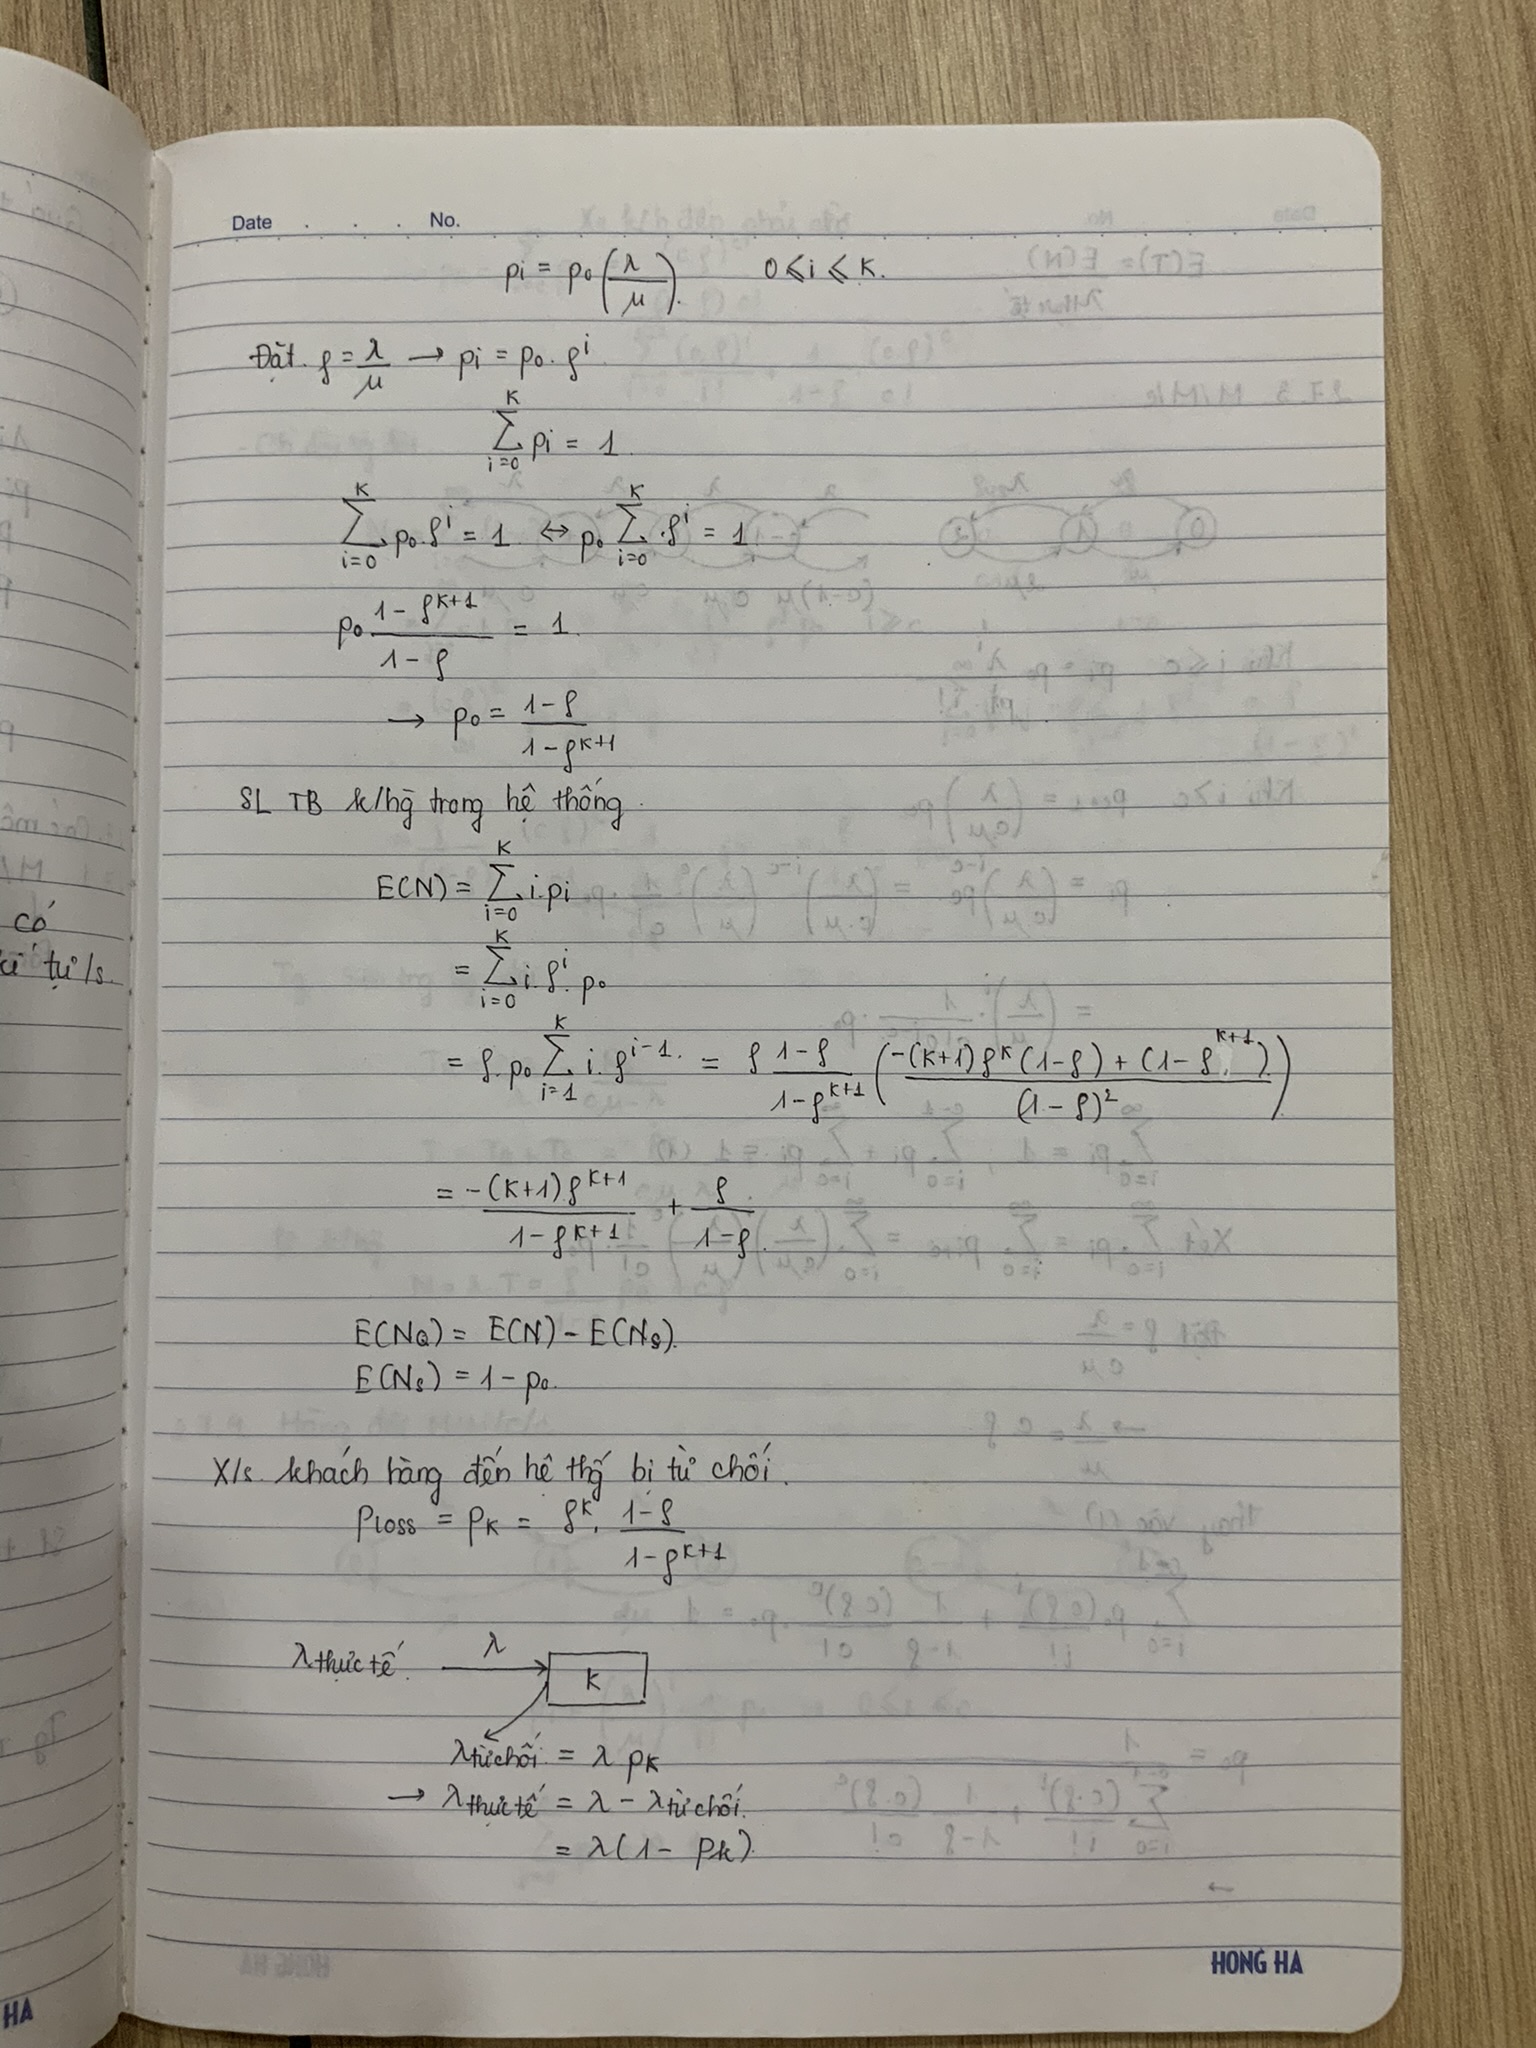 Date . . . No.
pi = p0 (λ/μ). 0 ≤ i ≤ K.
Đặt. ρ = λ/μ → pi = p0. ρ^i
∑_{i=0}^{K} pi = 1
∑_{i=0}^{K} p0.ρ^i = 1 ⇔ p0 ∑_{i=0}^{K}.ρ^i = 1
p0 (1-ρ^{K+1})/(1-ρ) = 1.
→ p0 = (1-ρ)/(1-ρ^{K+1})
SL TB k/hg trong hệ thống.
E(N) = ∑_{i=0}^{K} i.pi
có
= ∑_{i=0}^{K} i.ρ^i. p0
tự/s.
= ρ.p0 ∑_{i=1}^{K} i.ρ^{i-1}. = ρ (1-ρ)/(1-ρ^{K+1}) ((-(K+1)ρ^K(1-ρ) + (1-ρ^{K+1}))/(1-ρ)^2)
= (-(K+1)ρ^{K+1})/(1-ρ^{K+1}) + ρ/(1-ρ).
E(NQ) = E(N) - E(Ns).
E(Ns) = 1 - p0.
X/s. khách hàng đến hệ thg bị từ chối.
Ploss = PK = ρ^K. (1-ρ)/(1-ρ^{K+1})
λ thực tế. λ K
λ từ chối = λ PK
→ λ thực tế = λ - λ từ chối.
= λ(1 - Pk).
HONG HA
HA